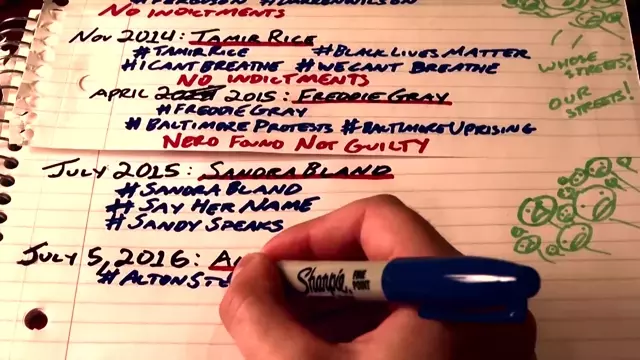 #FERGUSON #DARRENWILSON
NO INDICTMENTS
NOV 2014: TAMIR RICE
#TAMIRRICE #BLACKLIVESMATTER
#ICANTBREATHE #WECANTBREATHE
NO INDICTMENTS
APRIL 2015: FREDDIE GRAY
#FREDDIEGRAY
#BALTIMOREPROTESTS #BALTIMOREUPRISING
NERO FOUND NOT GUILTY
WHOSE STREETS?
OUR STREETS!
JULY 2015: SANDRA BLAND
#SANDRABLAND
#SAYHERNAME
#SANDYSPEAKS
JULY 5, 2016: A
#ALTONST
Sharpie FINE POINT